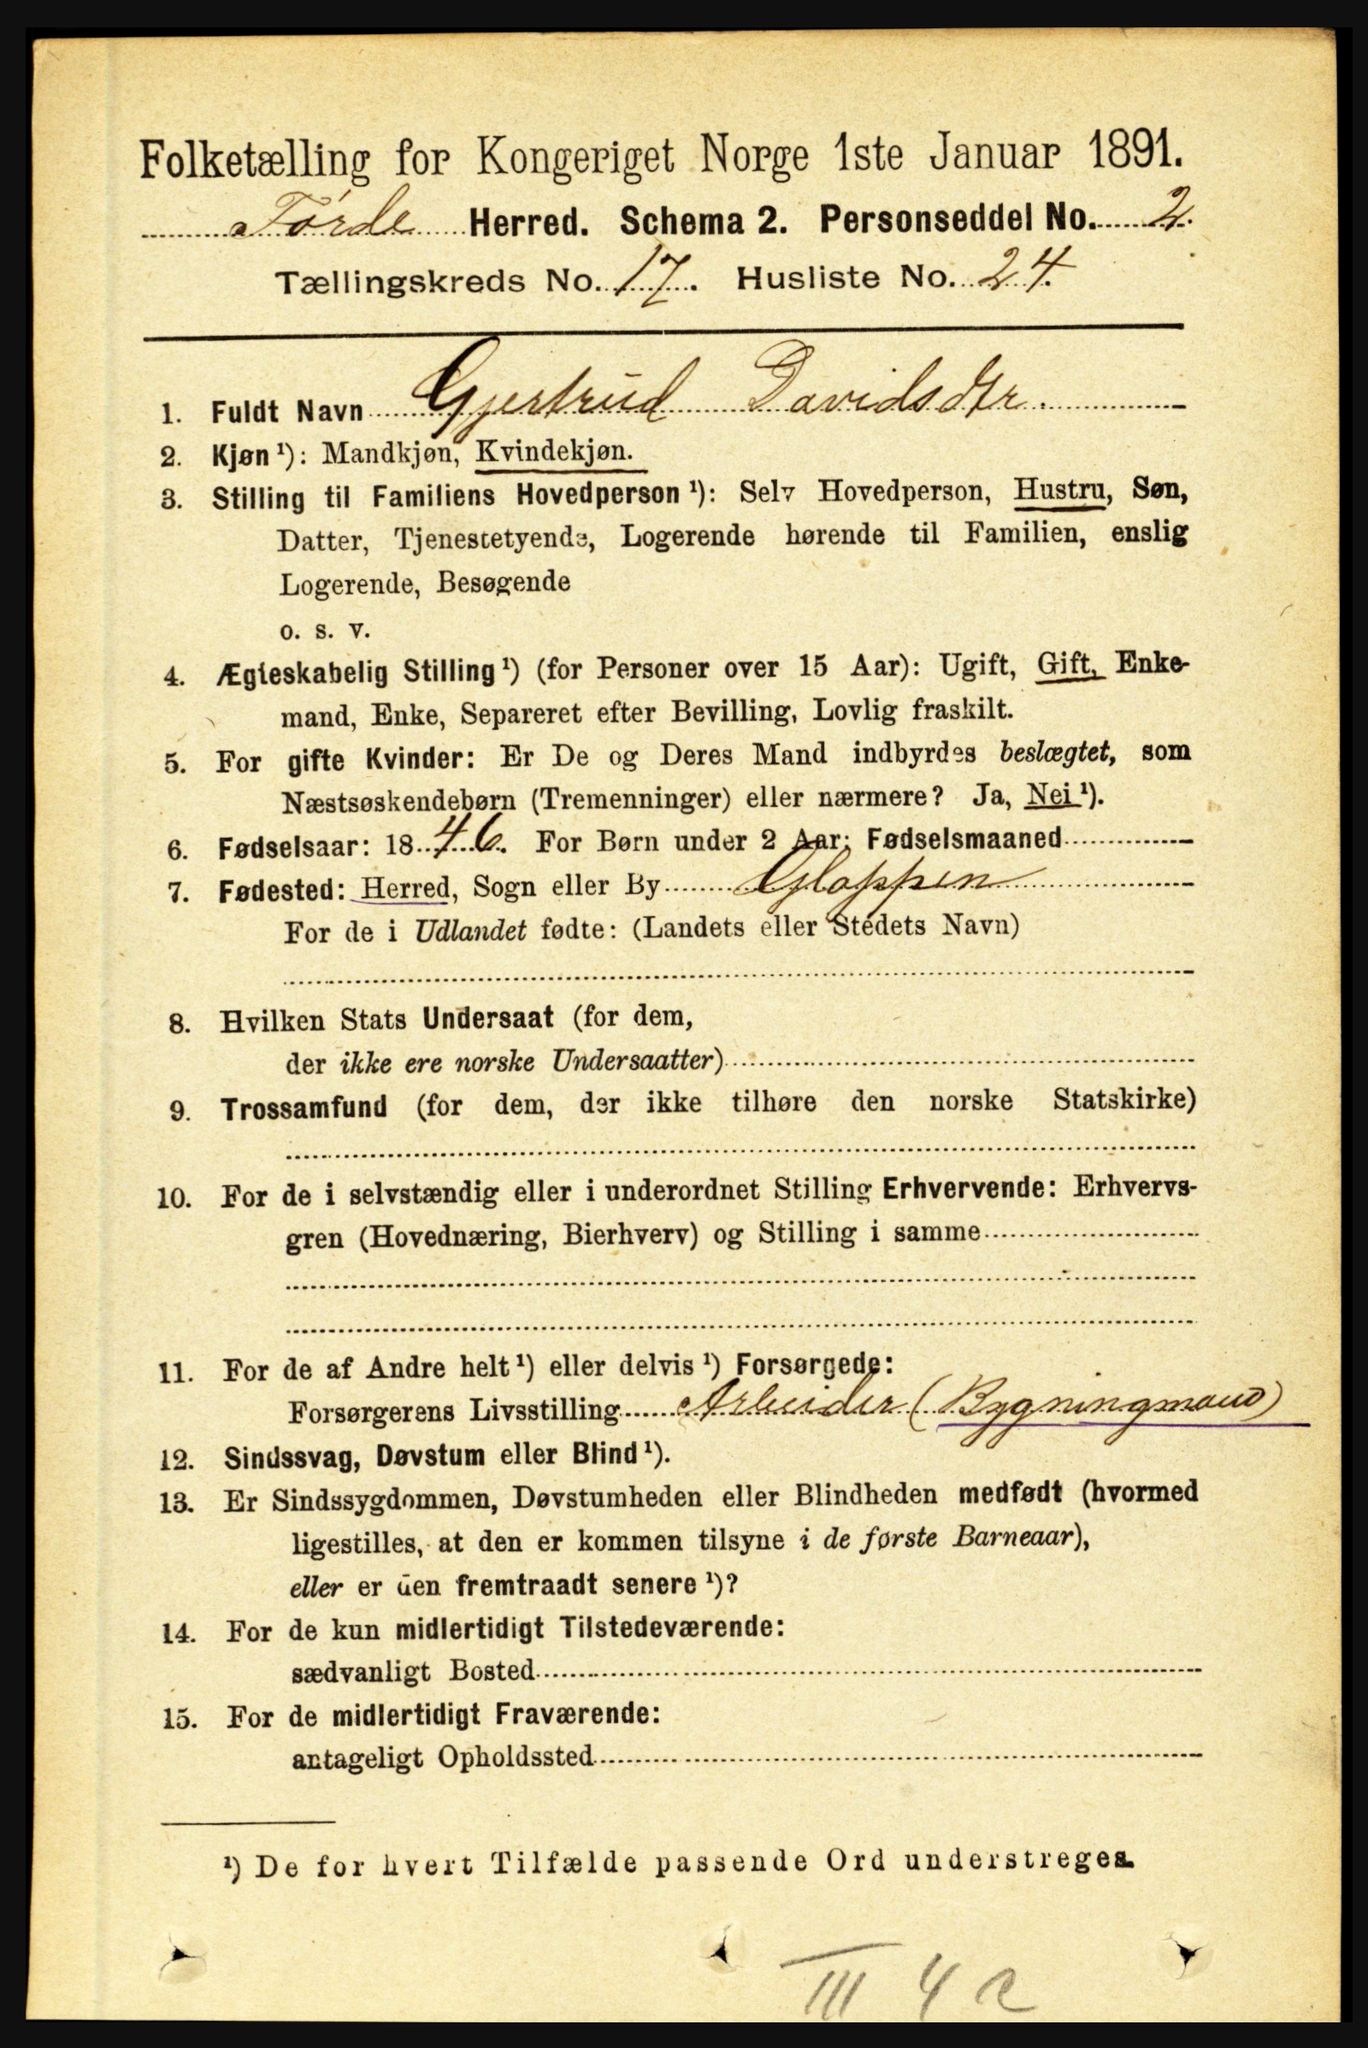 Folketælling for Kongeriget Norge 1ste Januar 1891.
Førde Herred. Schema 2. Personseddel No. 2.
Tællingskreds No. 17. Husliste No. 24.
1. Fuldt Navn Gjertrud Davidsdtr.
2. Kjøn ¹): Mandkjøn, Kvindekjøn.
3. Stilling til Familiens Hovedperson ¹): Selv Hovedperson, Hustru, Søn,
Datter, Tjenestetyende, Logerende hørende til Familien, enslig
Logerende, Besøgende
o. s. v.
4. Ægteskabelig Stilling ¹) (for Personer over 15 Aar): Ugift, Gift, Enke-
mand, Enke, Separeret efter Bevilling, Lovlig fraskilt.
5. For gifte Kvinder: Er De og Deres Mand indbyrdes beslægtet, som
Næstsøskendebørn (Tremenninger) eller nærmere? Ja, Nei ¹).
6. Fødselsaar: 1846. For Børn under 2 Aar: Fødselsmaaned
7. Fødested: Herred, Sogn eller By Gloppen
For de i Udlandet fødte: (Landets eller Stedets Navn)
8. Hvilken Stats Undersaat (for dem,
der ikke ere norske Undersaatter)
9. Trossamfund (for dem, der ikke tilhøre den norske Statskirke)
10. For de i selvstændig eller i underordnet Stilling Erhvervende: Erhvervs-
gren (Hovednæring, Bierhverv) og Stilling i samme
11. For de af Andre helt ¹) eller delvis ¹) Forsørgede:
Forsørgerens Livsstilling Arbeider (Bygningmand)
12. Sindssvag, Døvstum eller Blind ¹).
13. Er Sindssygdommen, Døvstumheden eller Blindheden medfødt (hvormed
ligestilles, at den er kommen tilsyne i de første Barneaar),
eller er den fremtraadt senere ¹)?
14. For de kun midlertidigt Tilstedeværende:
sædvanligt Bosted
15. For de midlertidigt Fraværende:
antageligt Opholdssted
¹) De for hvert Tilfælde passende Ord understreges.
III 4 c